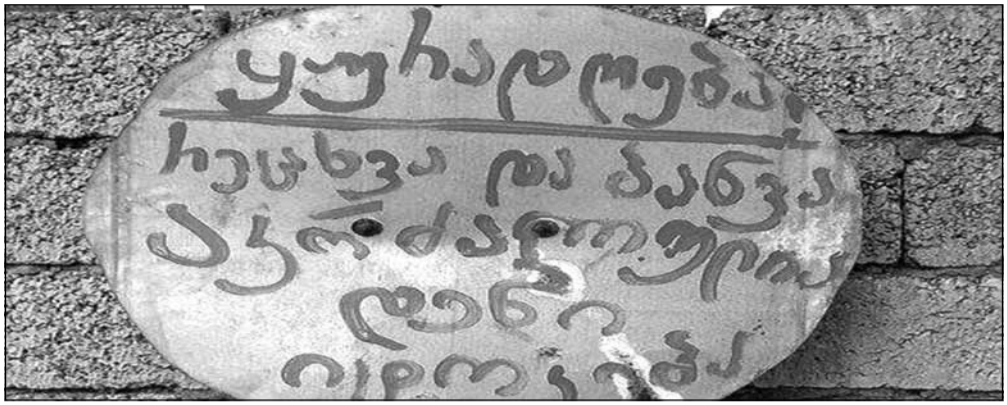 ყურადღება!
რეცხვა და ბანვა
აკრძალულია
დენი